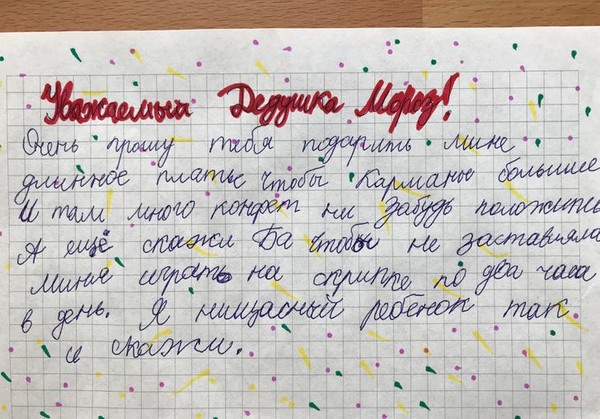 Уважаемый Дедушка Мороз!
Очень прошу тибя подарить мине
длинное платье чтобы карманы большие
И там много конфет ни забудь положить
А ещё скажи Ба чтобы не заставляла
миня играть на скрипке по два часа
в день. Я нищасный ребёнок так
и скажи.